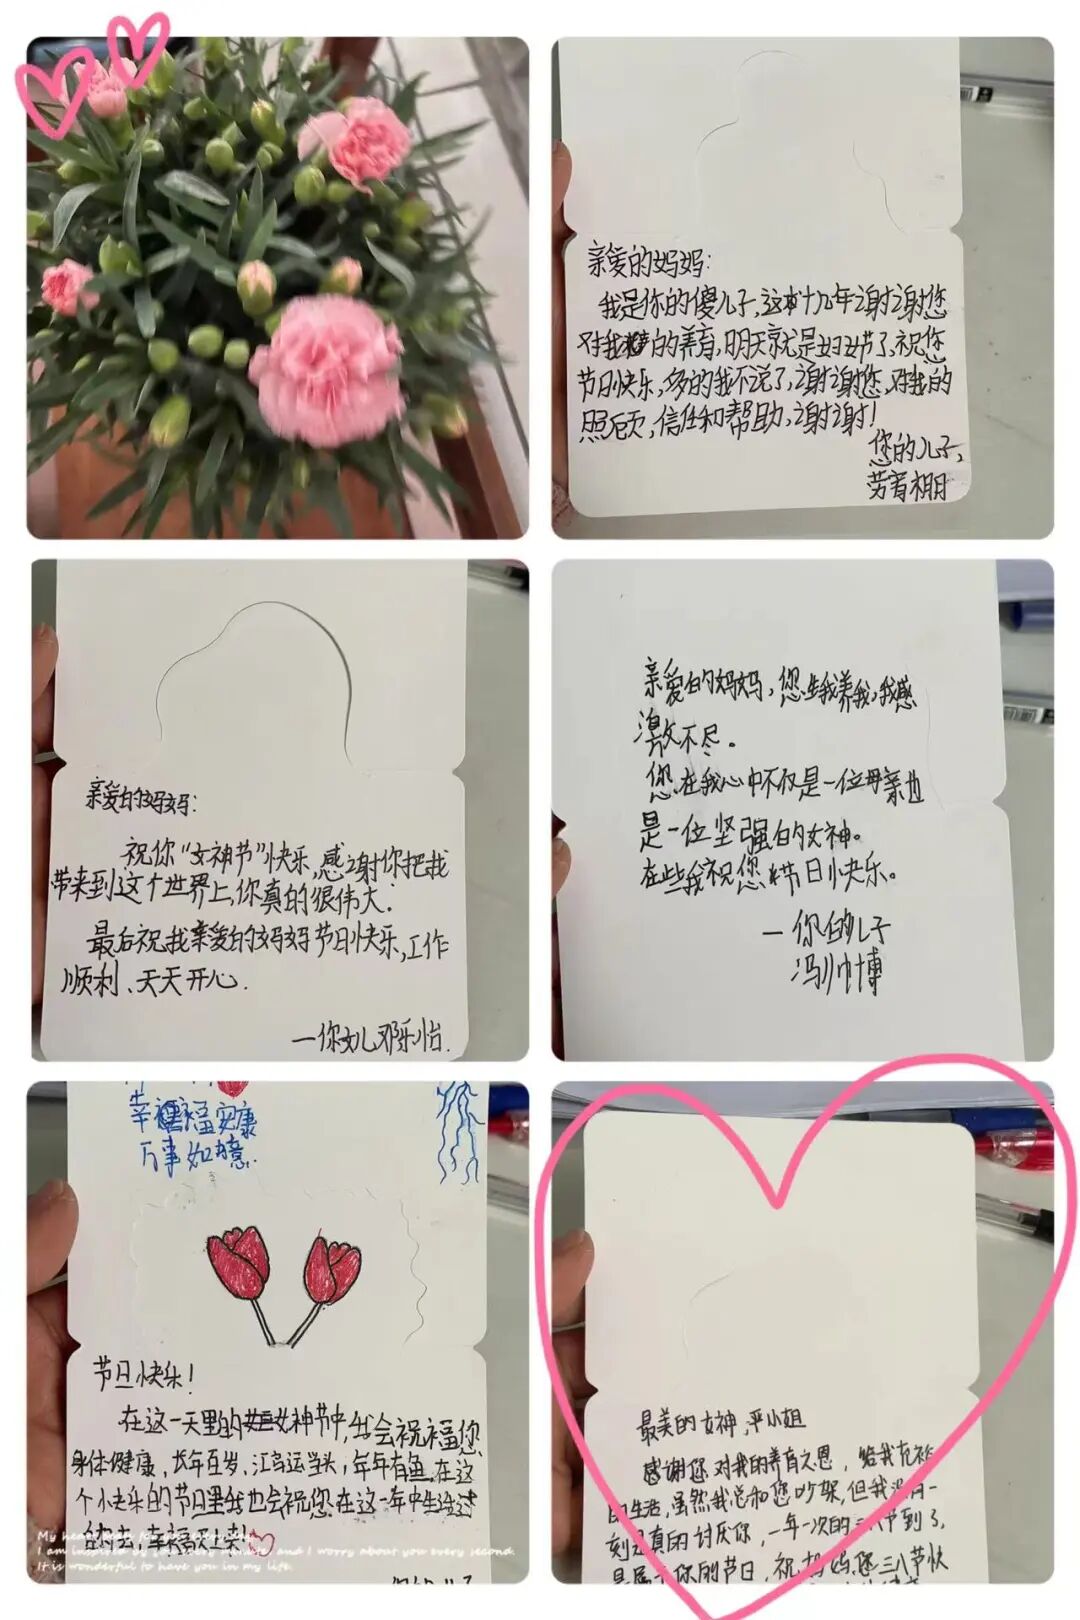 亲爱的妈妈:
我是你的傻儿子,这十九年谢谢您
对我的养育,明天就是妇女节了,祝您
节日快乐,多的我不说了,谢谢您,对我的
照顾,信任和帮助,谢谢!
您的儿子,
劳育栩
亲爱的妈妈:
祝你“女神节”快乐,感谢你把我
带来到这个世界上,你真的很伟大.
最后祝我亲爱的妈妈节日快乐,工作
顺利、天天开心.
一你女儿邓乐怡.
亲爱的妈妈,您生我养我,我感
激不尽。
您在我心中不仅是一位母亲也
是一位坚强的女神。
在些我祝您节日快乐。
一你的儿子
冯帅博
幸福安康
万事如意.
节日快乐!
在这一天里的女神节中,我会祝福您
身体健康,长年百岁,汇字运当头,年年有鱼.在这
个小快乐的节日里我也会祝您.在这一年中生活过
的去,幸福
My hea
I am ins and I worry about you every second.
It is wonderful to have you in my life.
最美的女神,平小姐
感谢您对我的养育之恩,给我充裕
的生活,虽然我总和您吵架,但我没有一
刻是真的讨厌你,一年一次的三八节到了,
是属于你的节日,祝妈妈,您三八节快